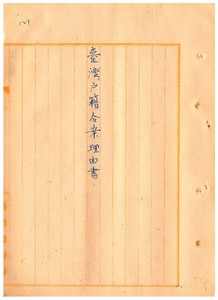 臺灣戶籍令案理由書